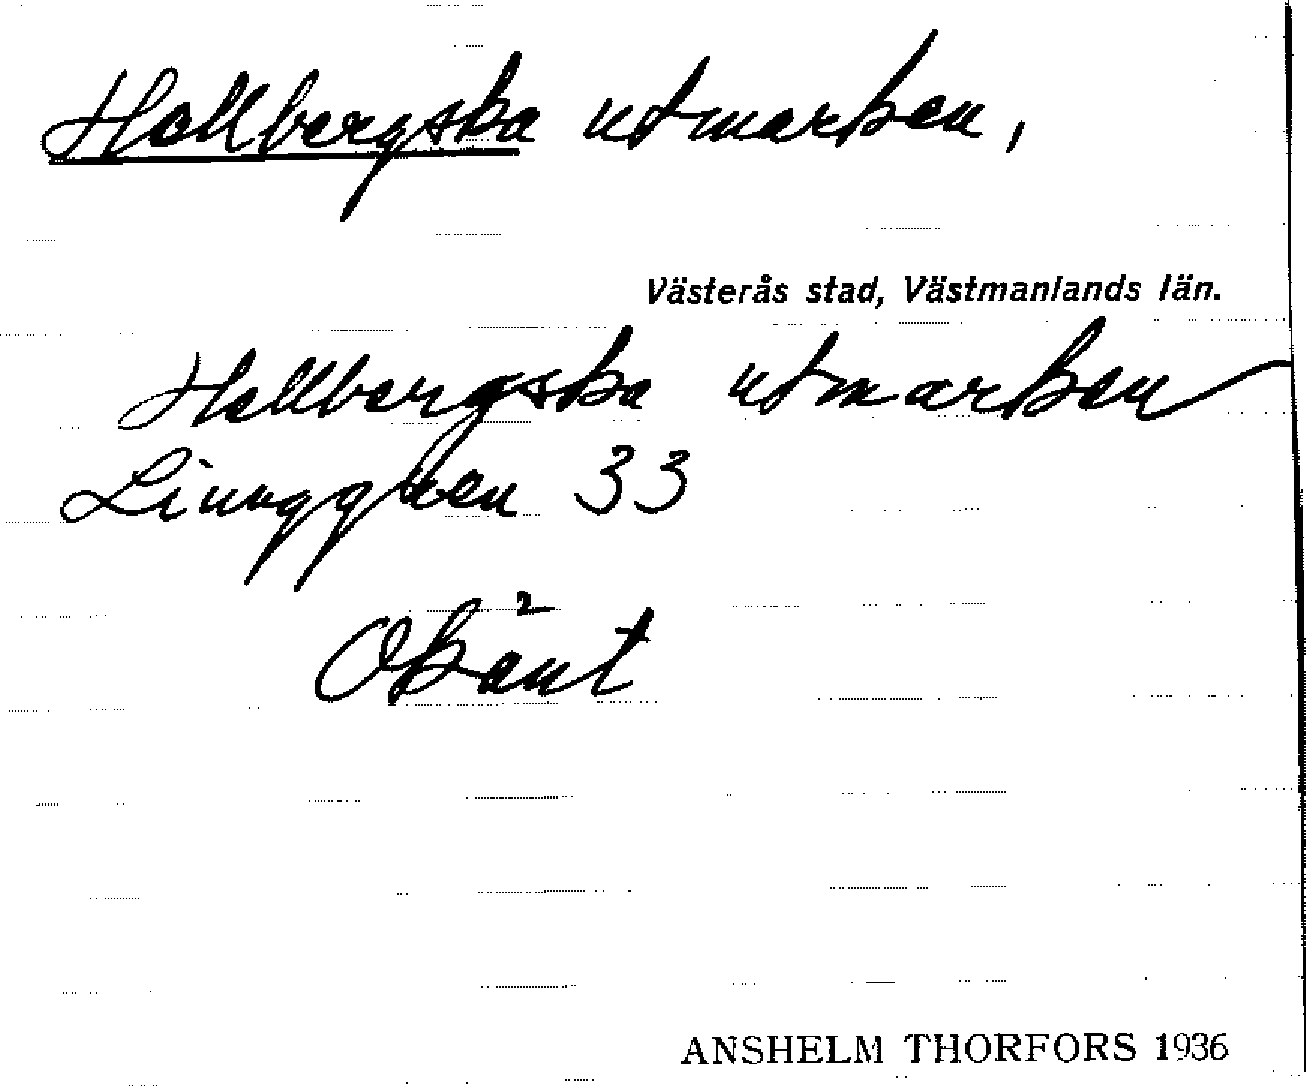 Hellbergska utmarken,
Västerås stad, Västmanlands län.
Hellbergska utmarken
Ljunggren 33
Okänt
ANSHELM THORFORS 1936